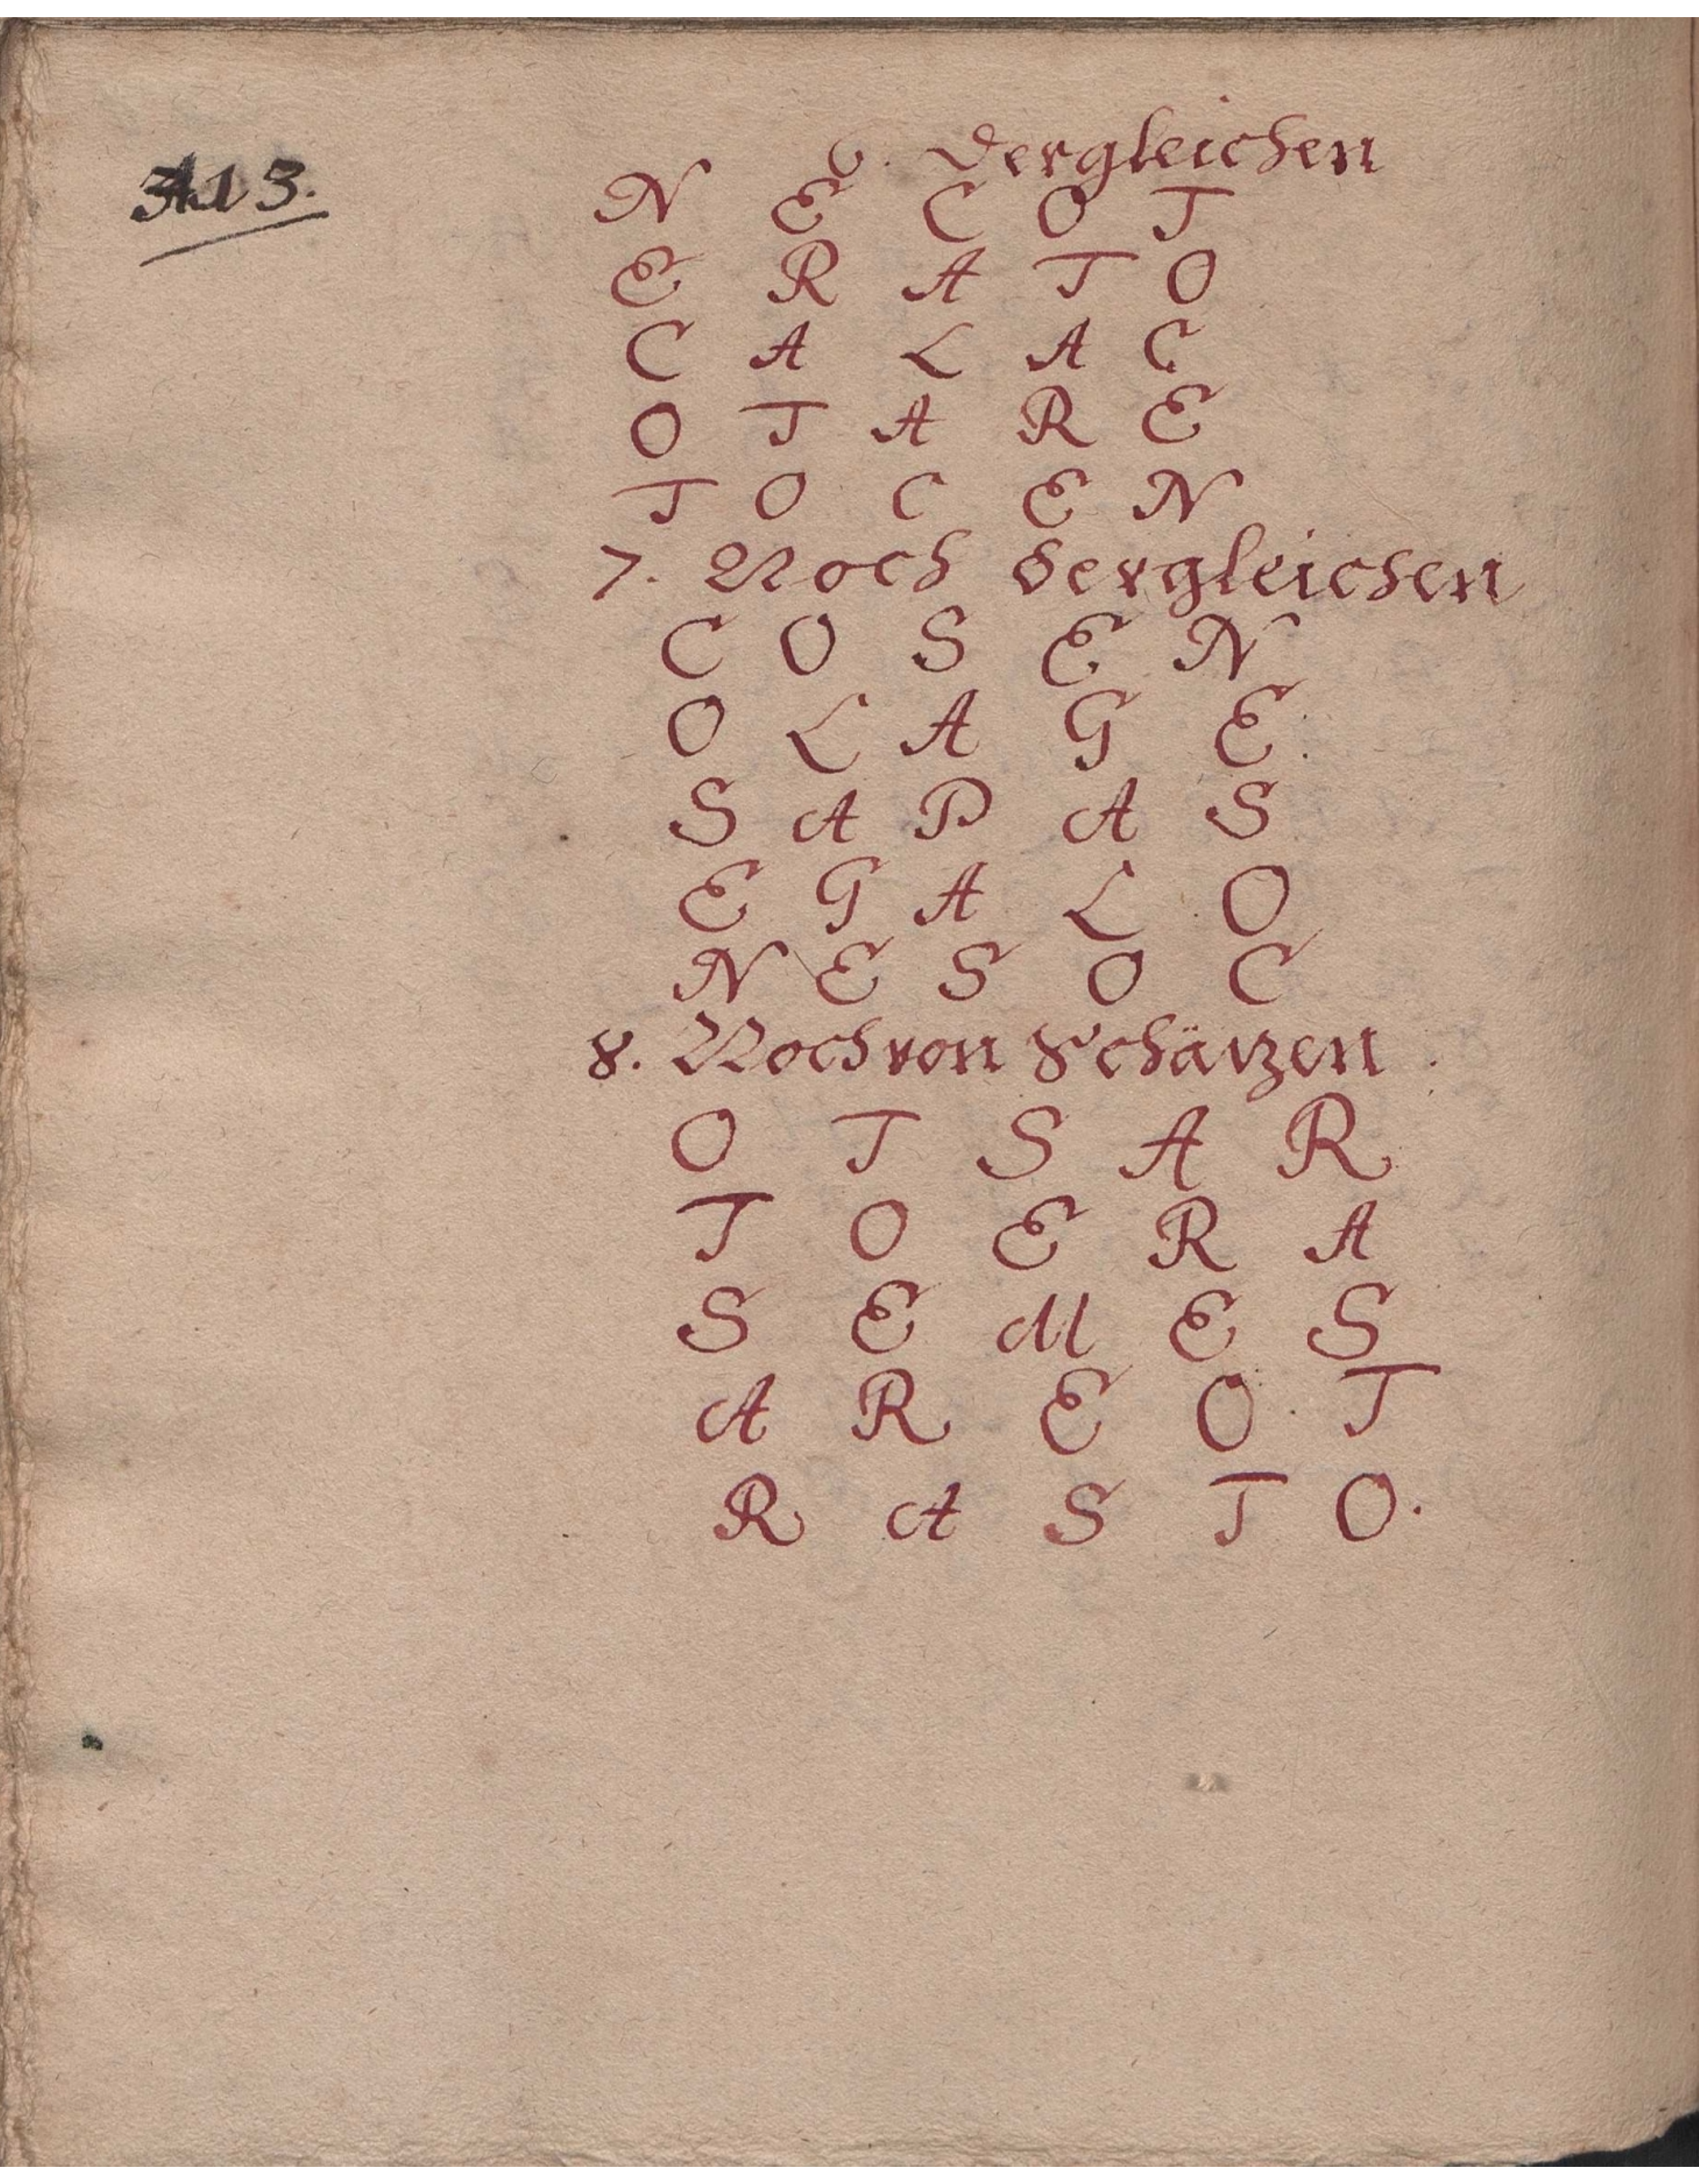 6. Dergleichen
N E C O T
E R A T O
C A L A C
O T A R E
T O C E N
7. Noch dergleichen
C O S E N
O L A G E
S A P A S
E G A L O
N E S O C
8. Noch von Schäzen
O T S A R
T O E R A
S E M E S
A R E O T
R A S T O.